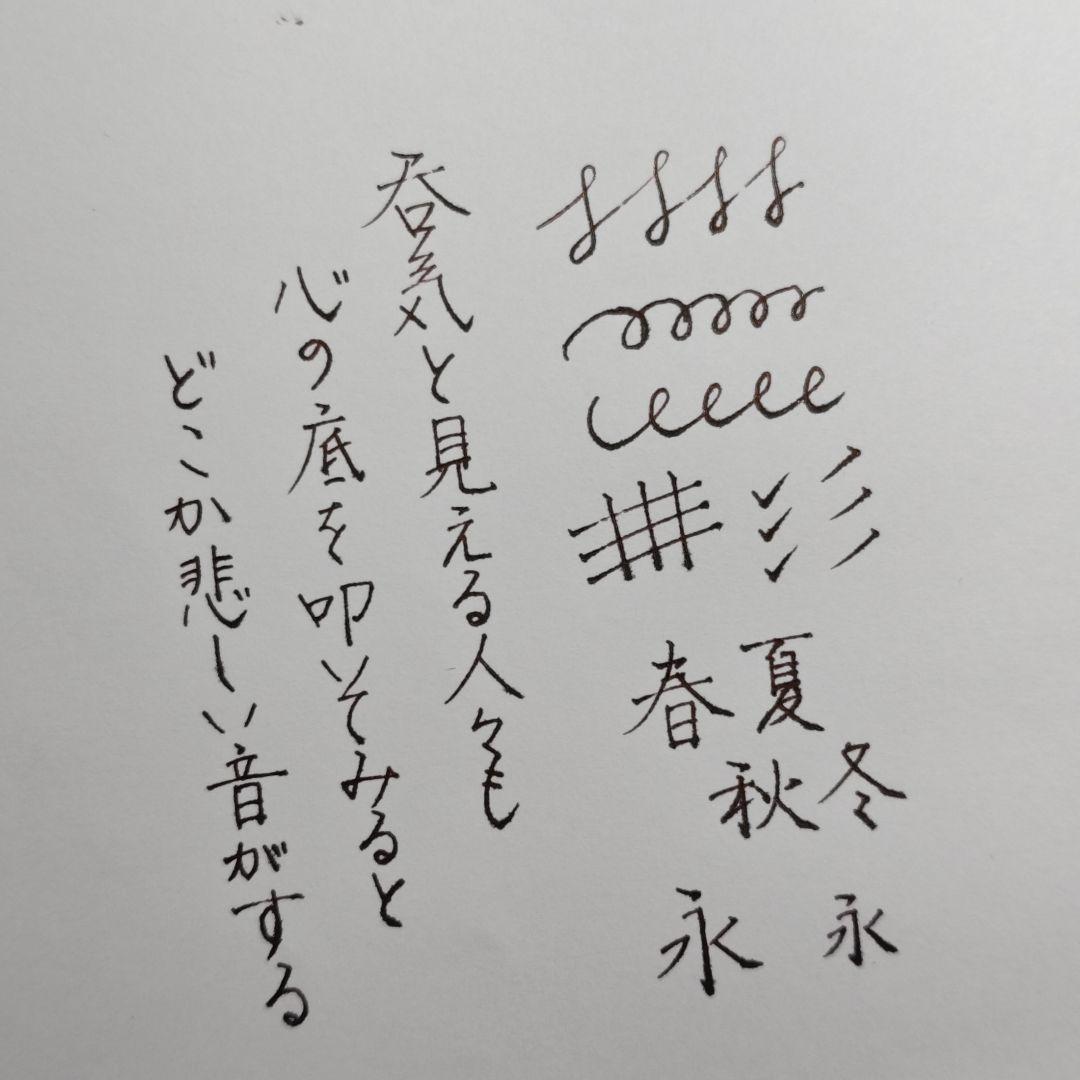 春夏
秋冬
永 永
呑気と見える人々も
心の底を叩いてみると
どこか悲しい音がする